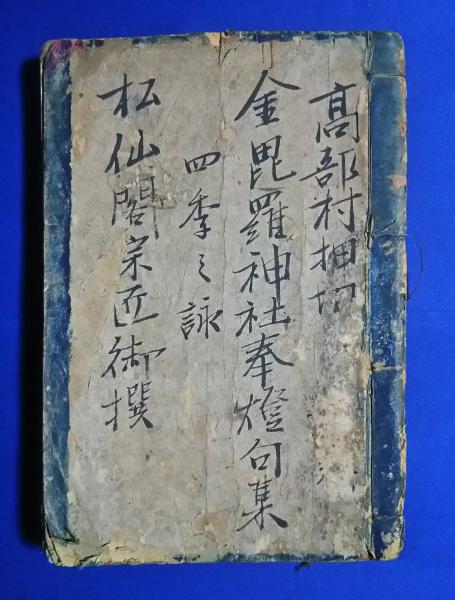 高部村押切
金毘羅神社奉燈句集
四季之詠
松仙閣宗匠御撰